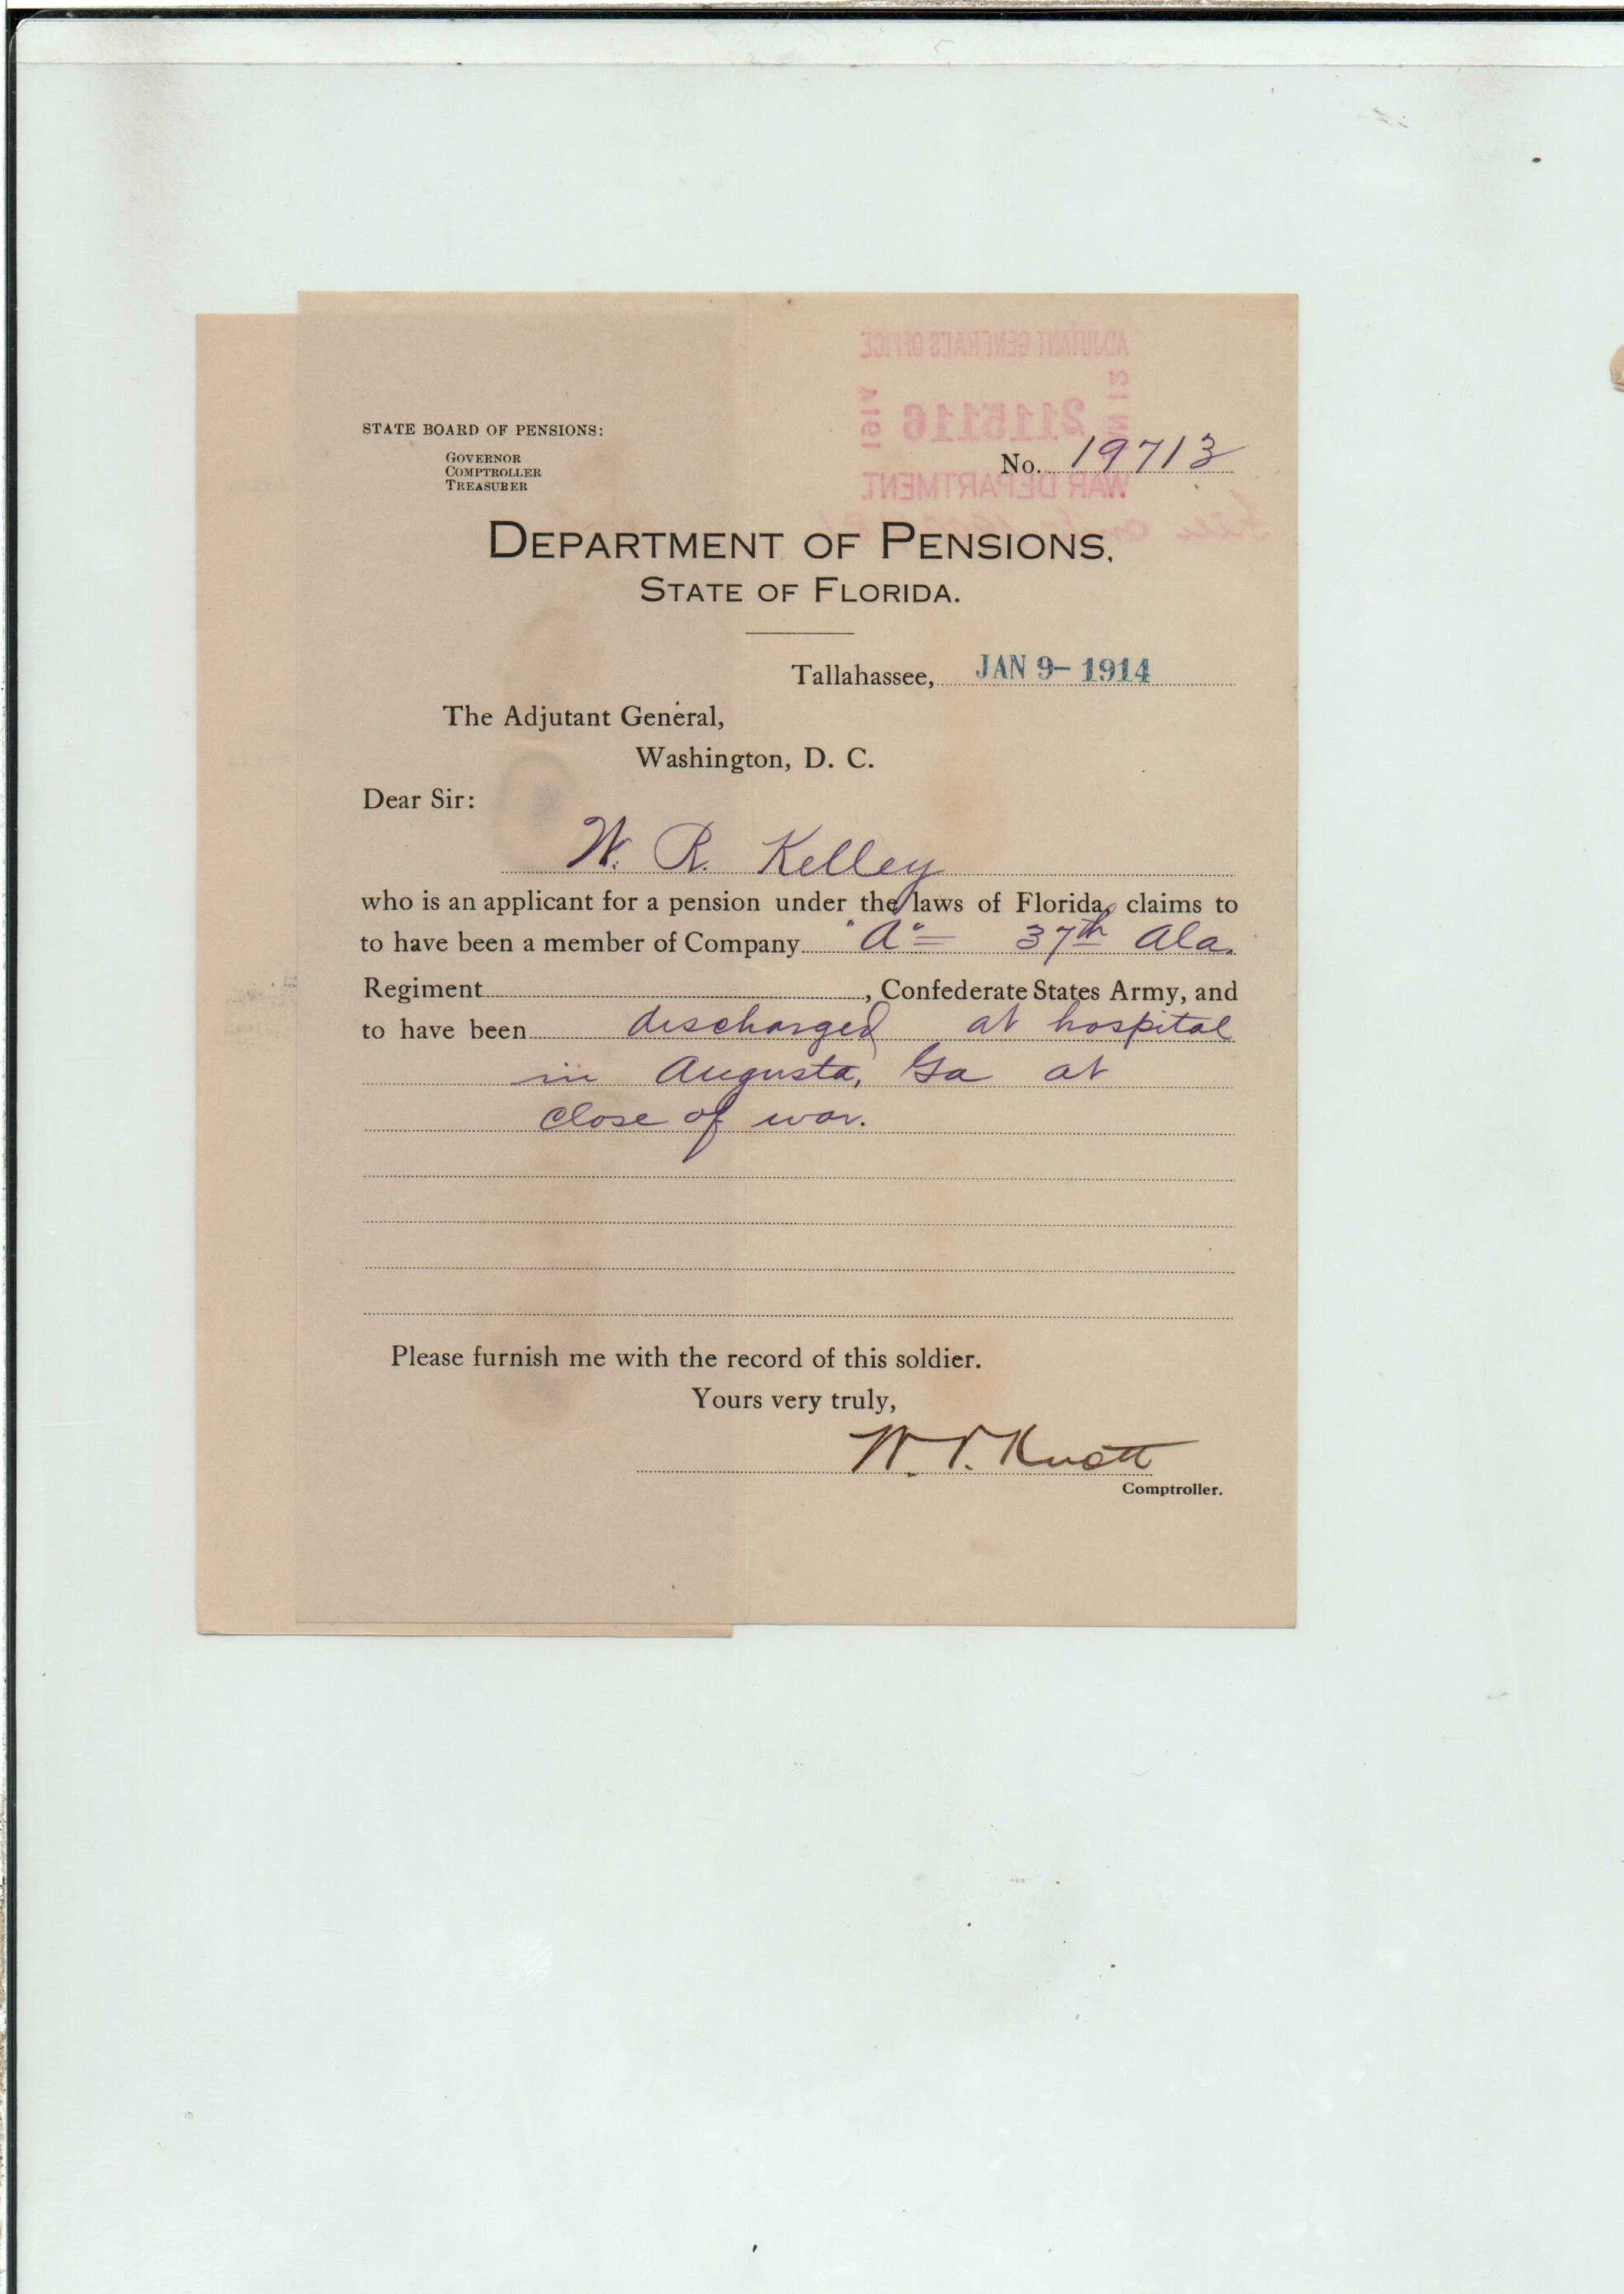 STATE BOARD OF PENSIONS:
GOVERNOR
COMPTROLLER
TREASURER
ADJUTANT GENERAL'S OFFICE
1914
2115116
WAR DEPARTMENT
No. 19713
DEPARTMENT OF PENSIONS,
STATE OF FLORIDA.
Tallahassee, JAN 9- 1914
The Adjutant General,
Washington, D. C.
Dear Sir:
W. R. Kelley
who is an applicant for a pension under the laws of Florida, claims to
to have been a member of Company "A" 37th Ala.
Regiment, Confederate States Army, and
to have been discharged at hospital
in Augusta, Ga at
close of war.
Please furnish me with the record of this soldier.
Yours very truly,
W. V. Knott
Comptroller.